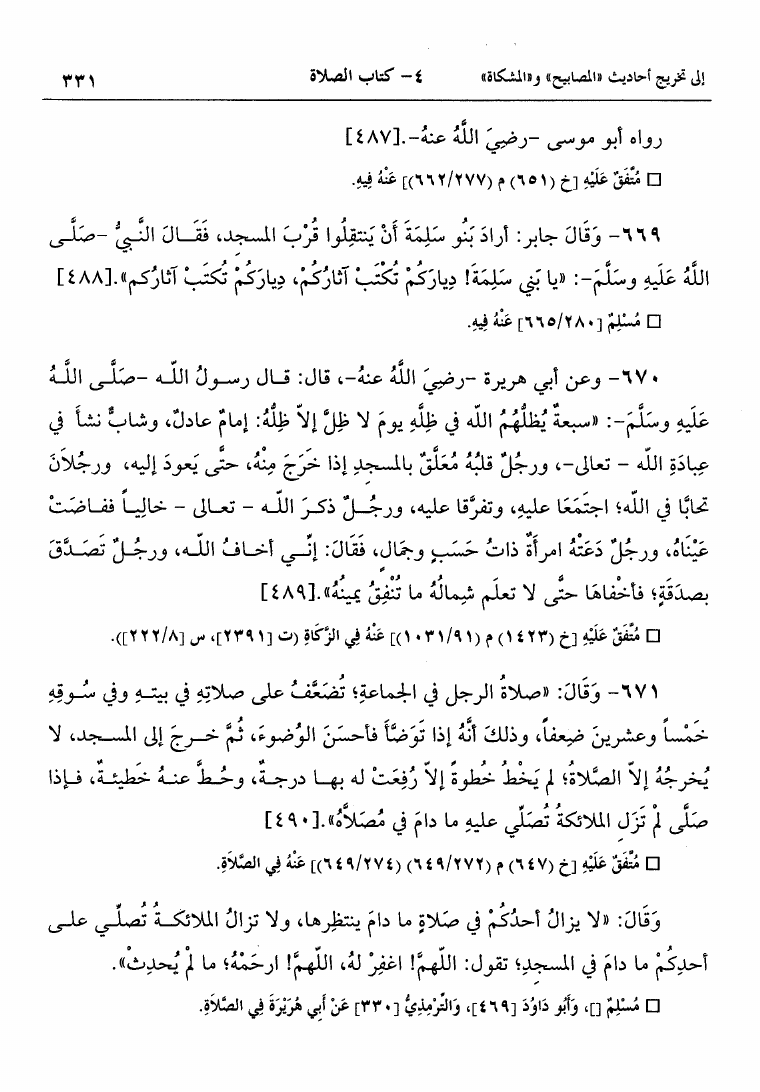 إلى تخريج أحاديث «المصابيح» و«المشكاة» ٤- كتاب الصلاة ٣٣١
رواه أبو موسى -رضيَ اللَّهُ عنهُ-.[٤٨٧]
□ مُتَّفَقٌ عَلَيْهِ [خ (٦٥١) م (٦٦٢/٢٧٧)] عَنْهُ فِيهِ.
٦٦٩- وَقَالَ جابر: أرادَ بَنُو سَلِمَةَ أَنْ يَنتقِلُوا قُرْبَ المسجدِ، فَقَالَ النَّبيُّ -صَلَّى
اللَّهُ عَلَيهِ وسَلَّمَ-: «يا بَني سَلِمَةَ! دِيارَكُمْ تُكْتَبْ آثارُكُمْ، دِيارَكُمْ تُكتَبْ آثارُكم».[٤٨٨]
□ مُسْلِمٌ [٦٦٥/٢٨٠] عَنْهُ فِيهِ.
٦٧٠- وعن أبي هريرة -رضيَ اللَّهُ عنهُ-، قال: قال رسولُ اللّه -صَلَّى اللَّهُ
عَلَيهِ وسَلَّمَ-: «سبعةٌ يُظلُّهُمُ اللّه في ظِلِّهِ يومَ لا ظِلَّ إلاّ ظِلُّهُ: إمامٌ عادلٌ، وشابٌّ نشأَ في
عِبادَةِ اللّه - تعالى-، ورجُلٌ قلبُهُ مُعَلَّقٌ بالمسجدِ إذا خَرَجَ مِنْهُ، حتَّى يَعودَ إليه، ورجُلاَنَ
تحابَّا في اللّه؛ اجتَمَعَا عليهِ، وتفرَّقا عليه، ورجُلٌ ذكرَ اللّه - تعالى - خالِياً ففاضَتْ
عَيْنَاهُ، ورجُلٌ دَعَتْهُ امرأةٌ ذاتُ حَسَبٍ وجمَالٍ، فَقَالَ: إنِّي أخافُ اللّه، ورجُلٌ تَصَدَّقَ
بصدَقَةٍ؛ فأخْفاهَا حتَّى لا تعلَم شِمالُهُ ما تُنْفِقُ يمينُهُ».[٤٨٩]
□ مُتَّفَقٌ عَلَيْهِ [خ (١٤٢٣) م (١٠٣١/٩١)] عَنْهُ فِي الزَّكَاةِ (ت [٢٣٩١]، س [٢٢٢/٨]).
٦٧١- وَقَالَ: «صلاةُ الرجلِ في الجماعةِ؛ تُضَعَّفُ على صلاتِهِ في بيتهِ وفي سُوقِهِ
خَمْساً وعشرينَ ضِعفاً، وذلكَ أنَّهُ إذا تَوَضَّأَ فأحسَنَ الوُضوءَ، ثُمَّ خرجَ إلى المسجد، لا
يُخرجُهُ إلاّ الصَّلاةُ؛ لم يَخْطُ خُطوةً إلاّ رُفِعَتْ له بها درجةٌ، وحُطَّ عنهُ خَطيئةٌ، فإذا
صلَّى لمْ تَزَلِ الملائكةُ تُصَلِّي عليهِ ما دامَ في مُصَلاَّهُ».[٤٩٠]
□ مُتَّفَقٌ عَلَيْهِ [خ (٦٤٧) م (٦٤٩/٢٧٢) (٦٤٩/٢٧٤)] عَنْهُ فِي الصَّلاَةِ.
وَقَالَ: «لا يزالُ أحدُكُمْ في صَلاةٍ ما دامَ ينتظِرها، ولا تزالُ الملائكةُ تُصلِّي على
أحدِكُمْ ما دامَ في المسجدِ؛ تقول: اللّهمَّ! اغفِرْ لهُ، اللّهمَّ! ارحَمْهُ؛ ما لمْ يُحدِثْ».
□ مُسْلِمٌ []، وَأَبُو دَاوُدَ [٤٦٩]، وَالتِّرْمِذِيُّ [٣٣٠] عَنْ أَبِي هُرَيْرَةَ فِي الصَّلاَةِ.